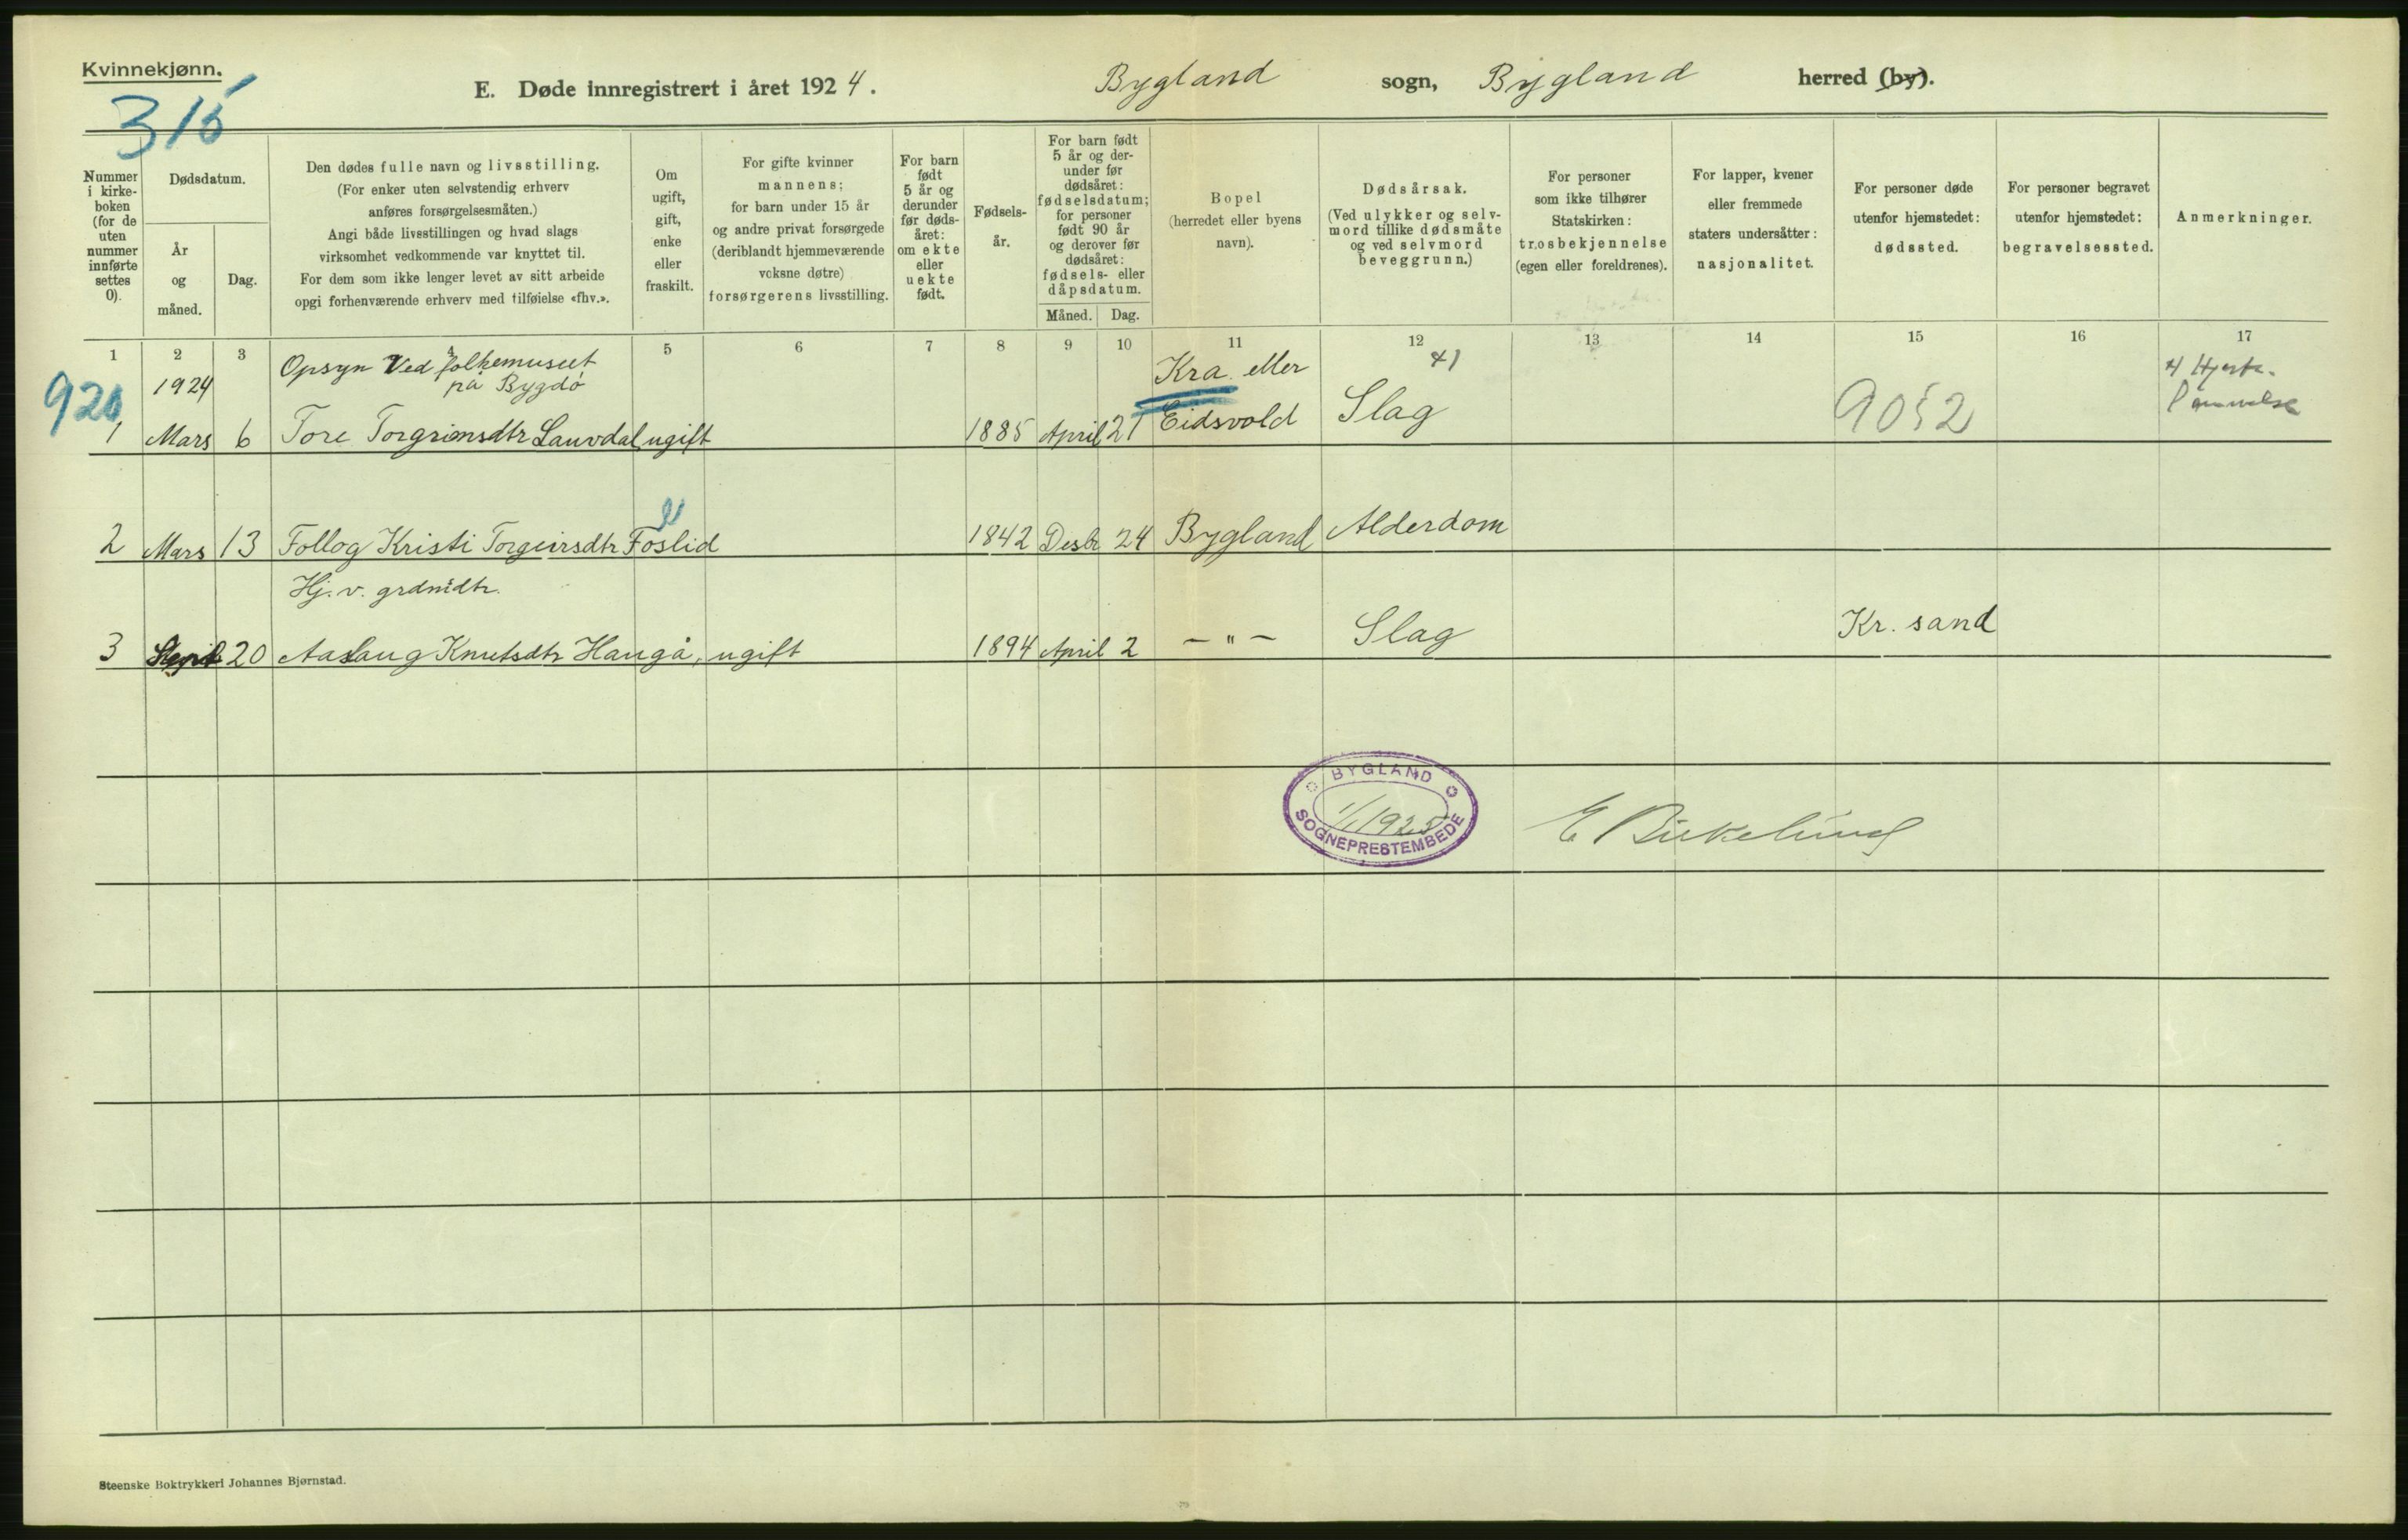 Kvinnekjønn.
315
E. Døde innregistrert i året 1924. Bygland sogn, Bygland herred (by).
Nummer i kirke- boken (for de uten nummer innførte settes 0).
Dødsdatum.
År og måned.
Dag.
Den dødes fulle navn og livsstilling.
(For enker uten selvstendig erhverv
anføres forsørgelsesmåten.)
Angi både livsstillingen og hvad slags
virksomhet vedkommende var knyttet til.
For dem som ikke lenger levet av sitt arbeide
opgi forhenværende erhverv med tilføielse «fhv.».
Om ugift, gift, enke eller fraskilt.
For gifte kvinner
mannens;
for barn under 15 år
og andre privat forsørgede
(deriblandt hjemmeværende
voksne døtre)
forsørgerens livsstilling.
For barn født 5 år og derunder før døds- året: om ekte eller uekte født.
Fødsels- år.
For barn født 5 år og der- under før dødsåret: fødselsdatum; for personer født 90 år og derover før dødsåret: fødsels- eller dåpsdatum.
Måned. Dag.
Bopel
(herredet eller byens
navn).
Dødsårsak.
(Ved ulykker og selv-
mord tillike dødsmåte
og ved selvmord
beveggrunn.)
For personer
som ikke tilhører
Statskirken:
trosbekjennelse
(egen eller foreldrenes).
For lapper, kvener
eller fremmede
staters undersåtter:
nasjonalitet.
For personer døde
utenfor hjemstedet:
dødssted.
For personer begravet
utenfor hjemstedet:
begravelsessted.
Anmerkninger.
1 2 3 5 6 7 8 9 10 11 12 13 14 15 16 17
920 1924 Opsyn Ved folkemuseet Kra. eller
på Bygdø
1 Mars 6 Tore Torgrimsdtr Lauvdal ugift 1885 April 21 Eidsvold Slag 9052
2 Mars 13 Follog Kristi Torgeirsdtr Foslid 1842 Desbr 24 Bygland Alderdom
Hj. v. grdmdtr.
3 20 Aaslaug Knutsdtr Haugå, ugift 1894 April 2 – " – Slag Kr. sand
BYGLAND
1/1 1925
SOGNEPRESTEMBEDE
E Birkelund
Steenske Boktrykkeri Johannes Bjørnstad.